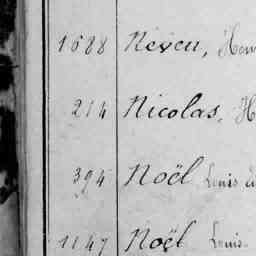 1688 Neveu, Hen
214 Nicolas, H
394 Noël Louis E
1147 Noël Louis